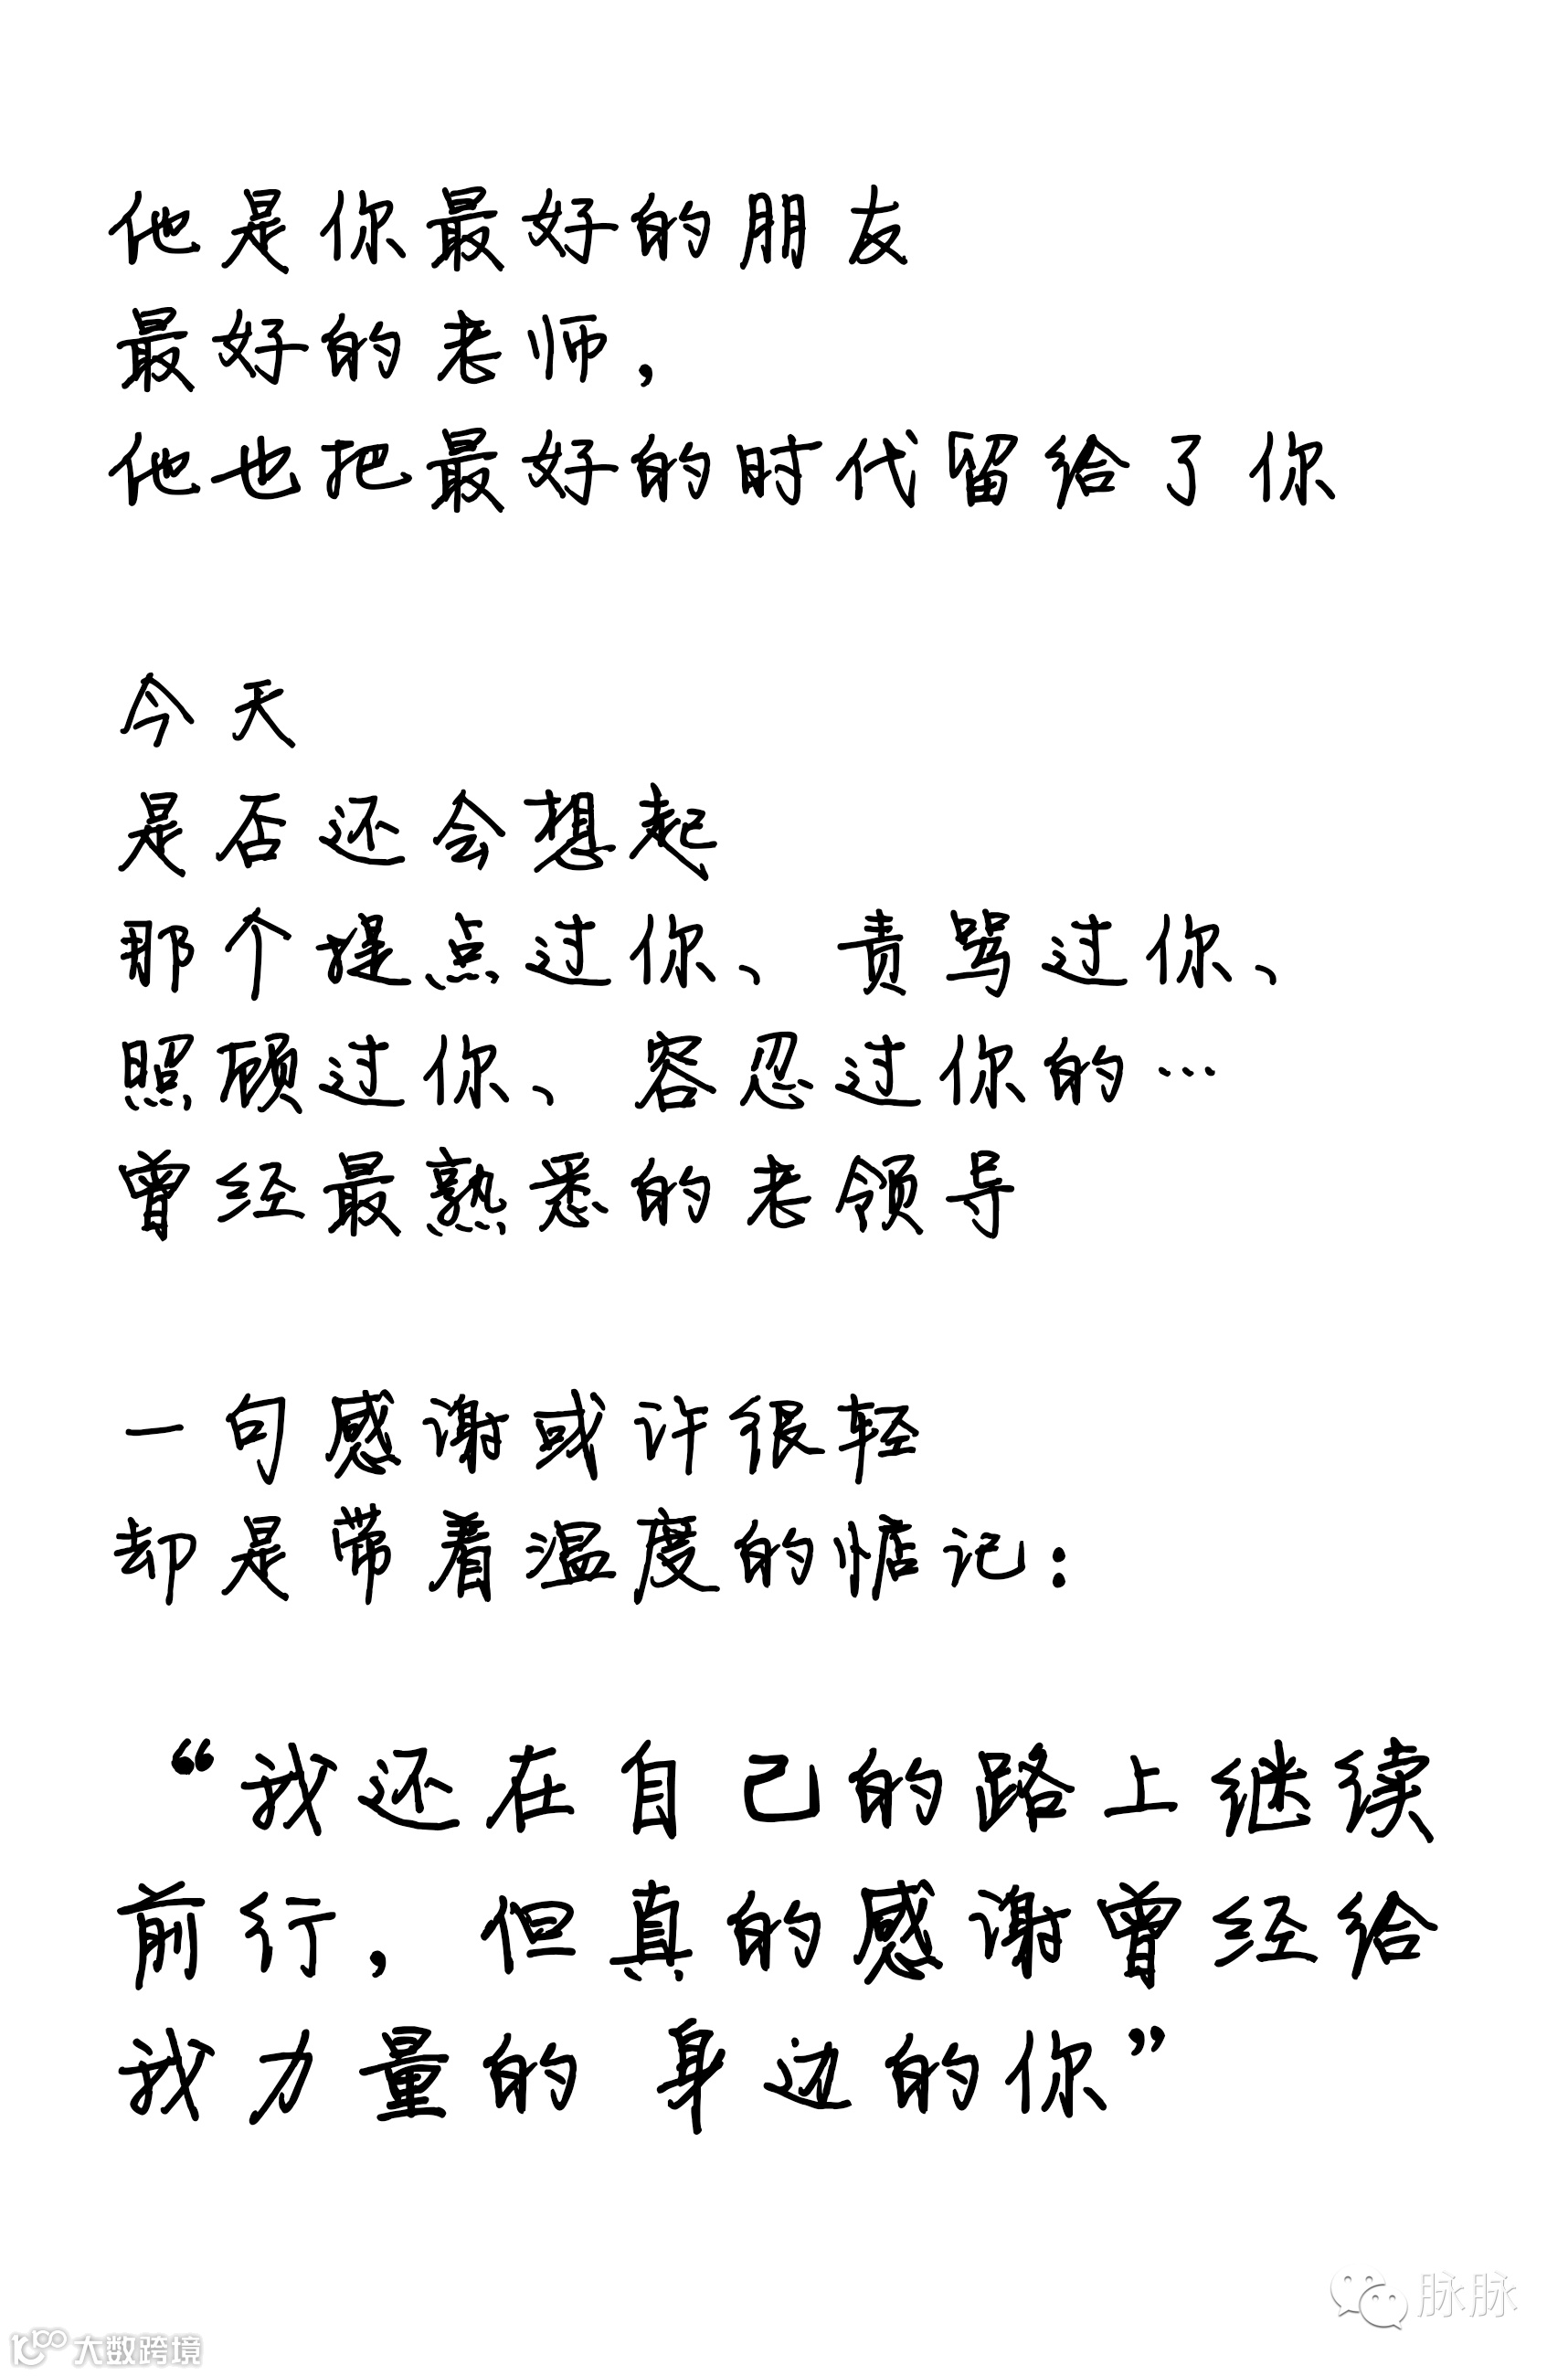 他是你最好的朋友
最好的老师，
他也把最好的时代留给了你
今天
是否还会想起
那个提点过你、责骂过你、
照顾过你、容忍过你的…
曾经最熟悉的老领导
一句感谢或许很轻
却是带着温度的惦记：
“我还在自己的路上继续
前行，但真的感谢曾经给
我力量的 身边的你”
脉脉
大数跨境